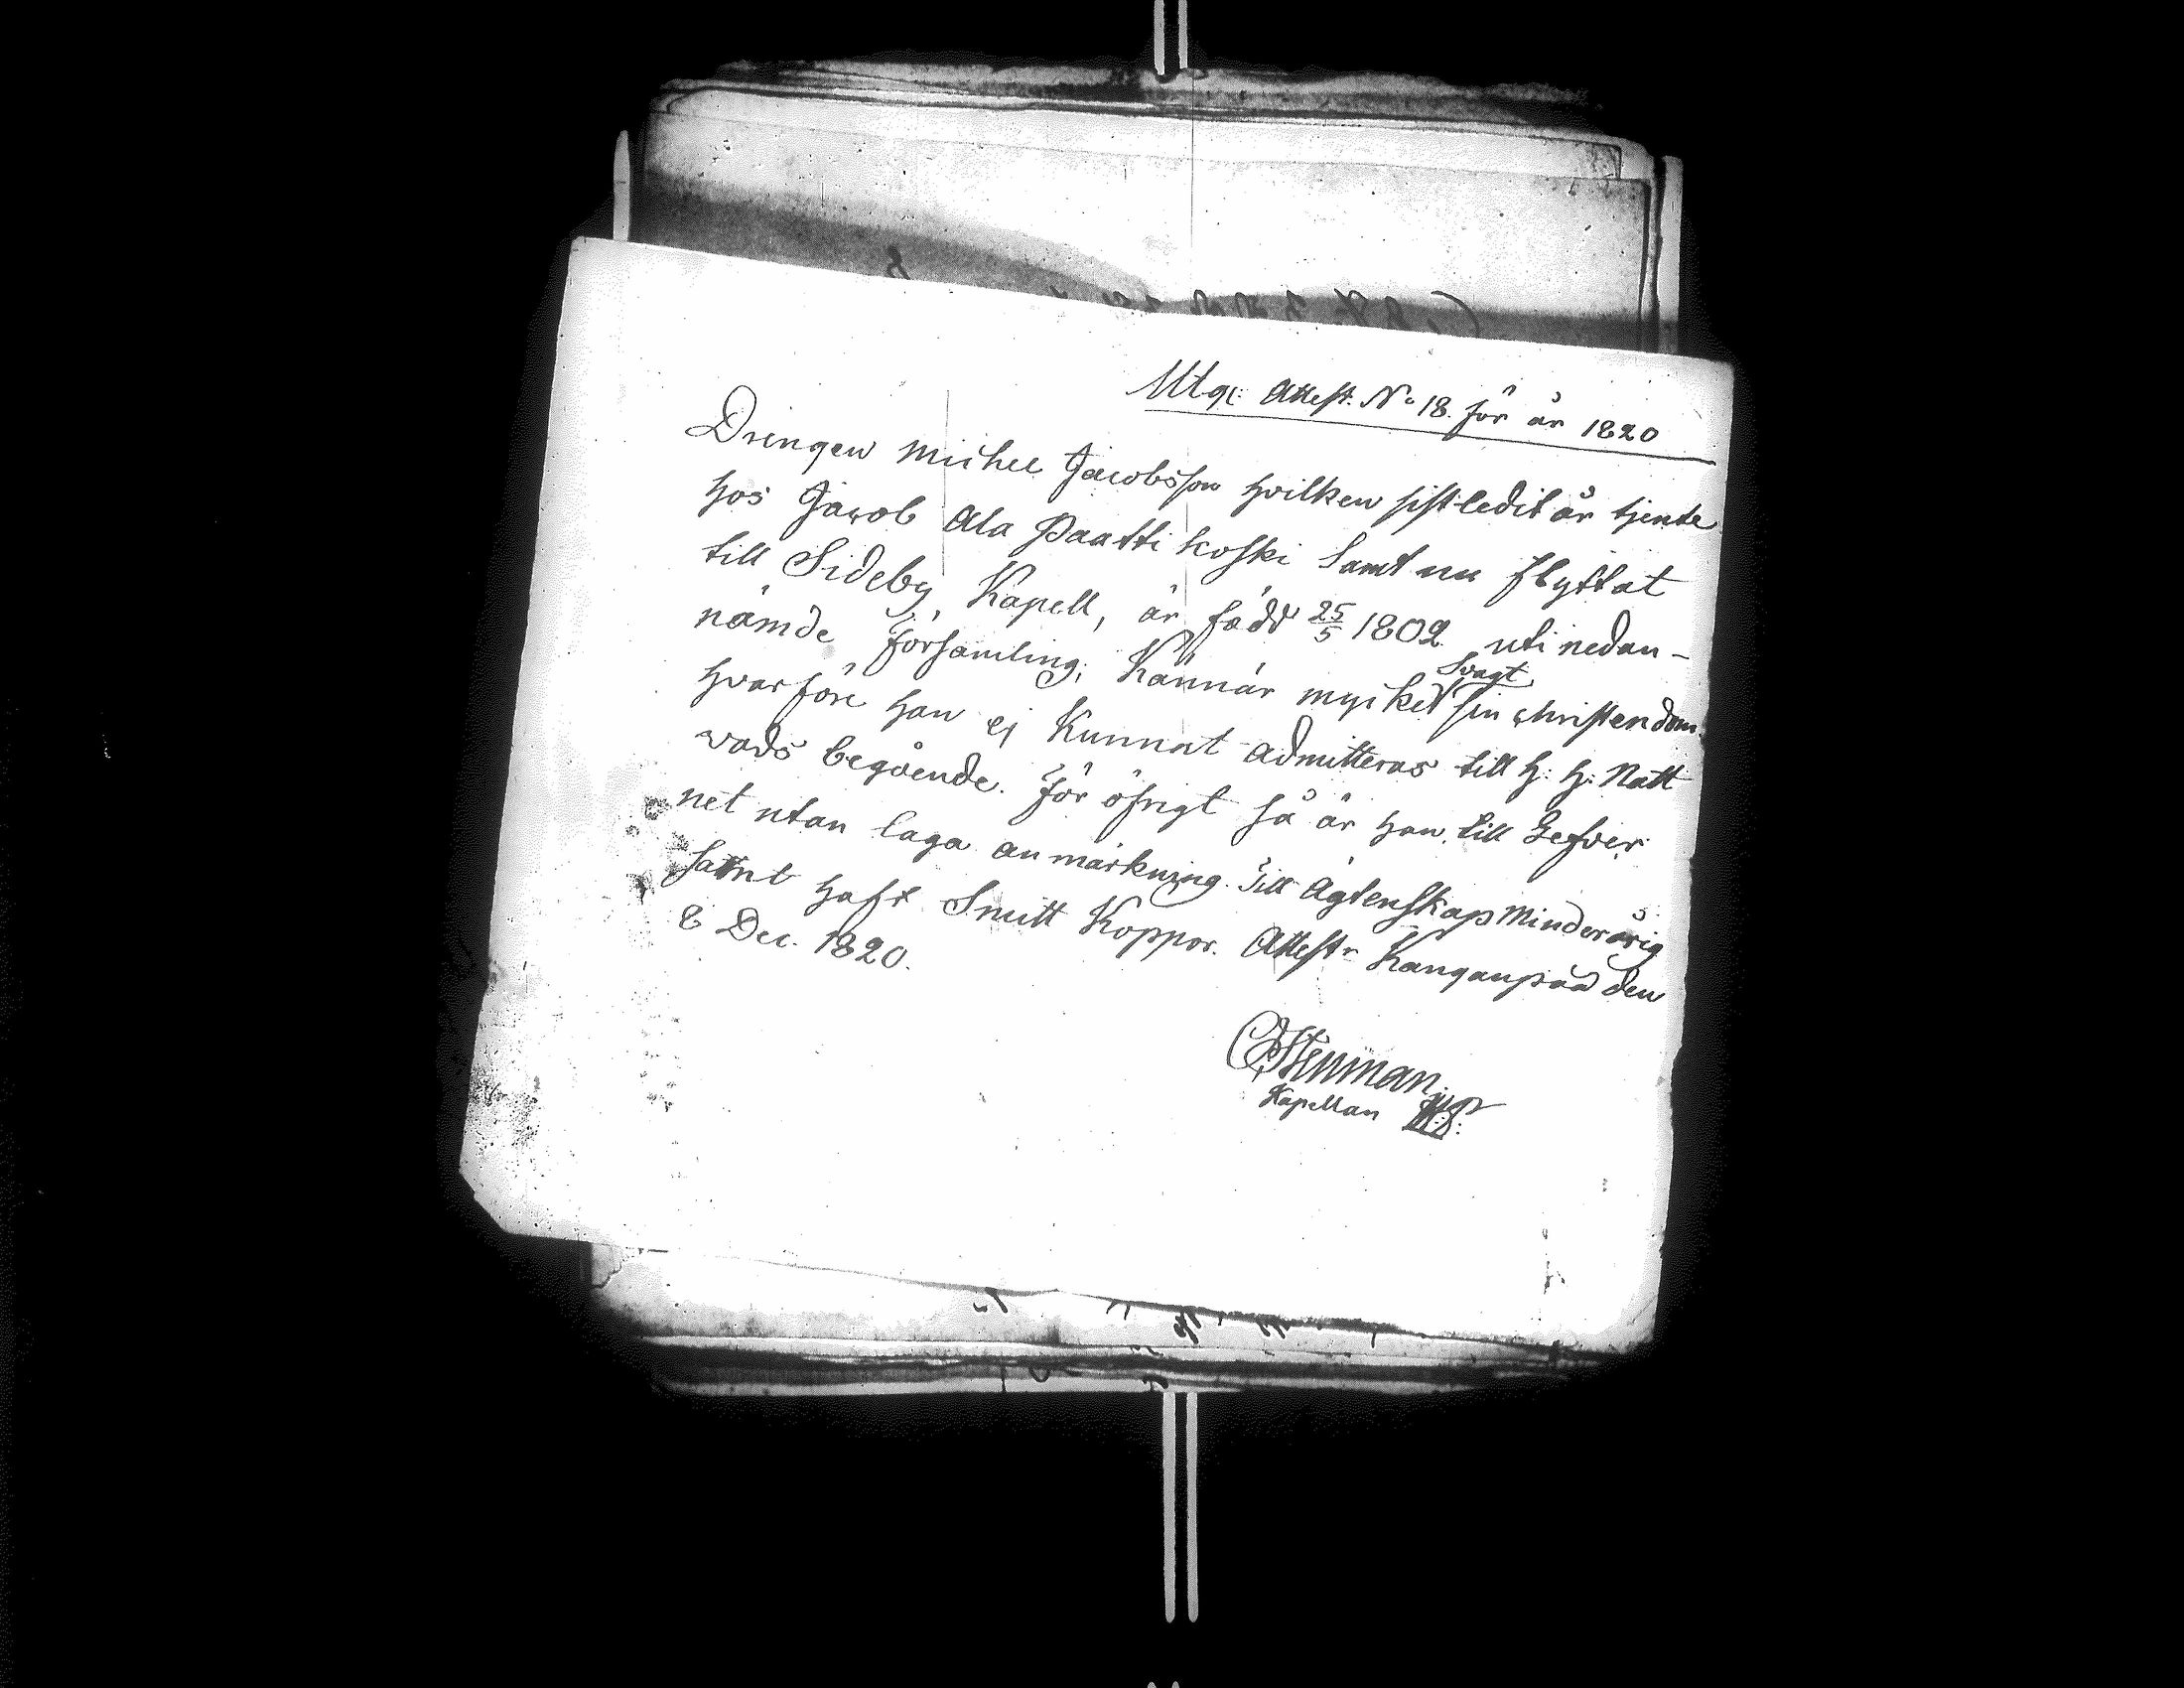 Utgi: Attest. No 18 för år 1820
Drengen Michel Jacobsson hvilken sistledit år tjente
hos Jacob Ala Paattikoski samt nu flyttat
till Sideby, Kapell, är född 25/5 1802 uti nedan-
nämde församling; Känner mycket svagt sin christendom
hvarföre han ej Kunnat admitteras till H: H: Natt
vads begående. För öfrigt så är han till Lefver
net utan laga anmärkning. Till Ägtenskap Minderårig
samt haft Smitt Koppor. Attestr Kanganpää den
8 Dec. 1820.
Stenman
Kapellan